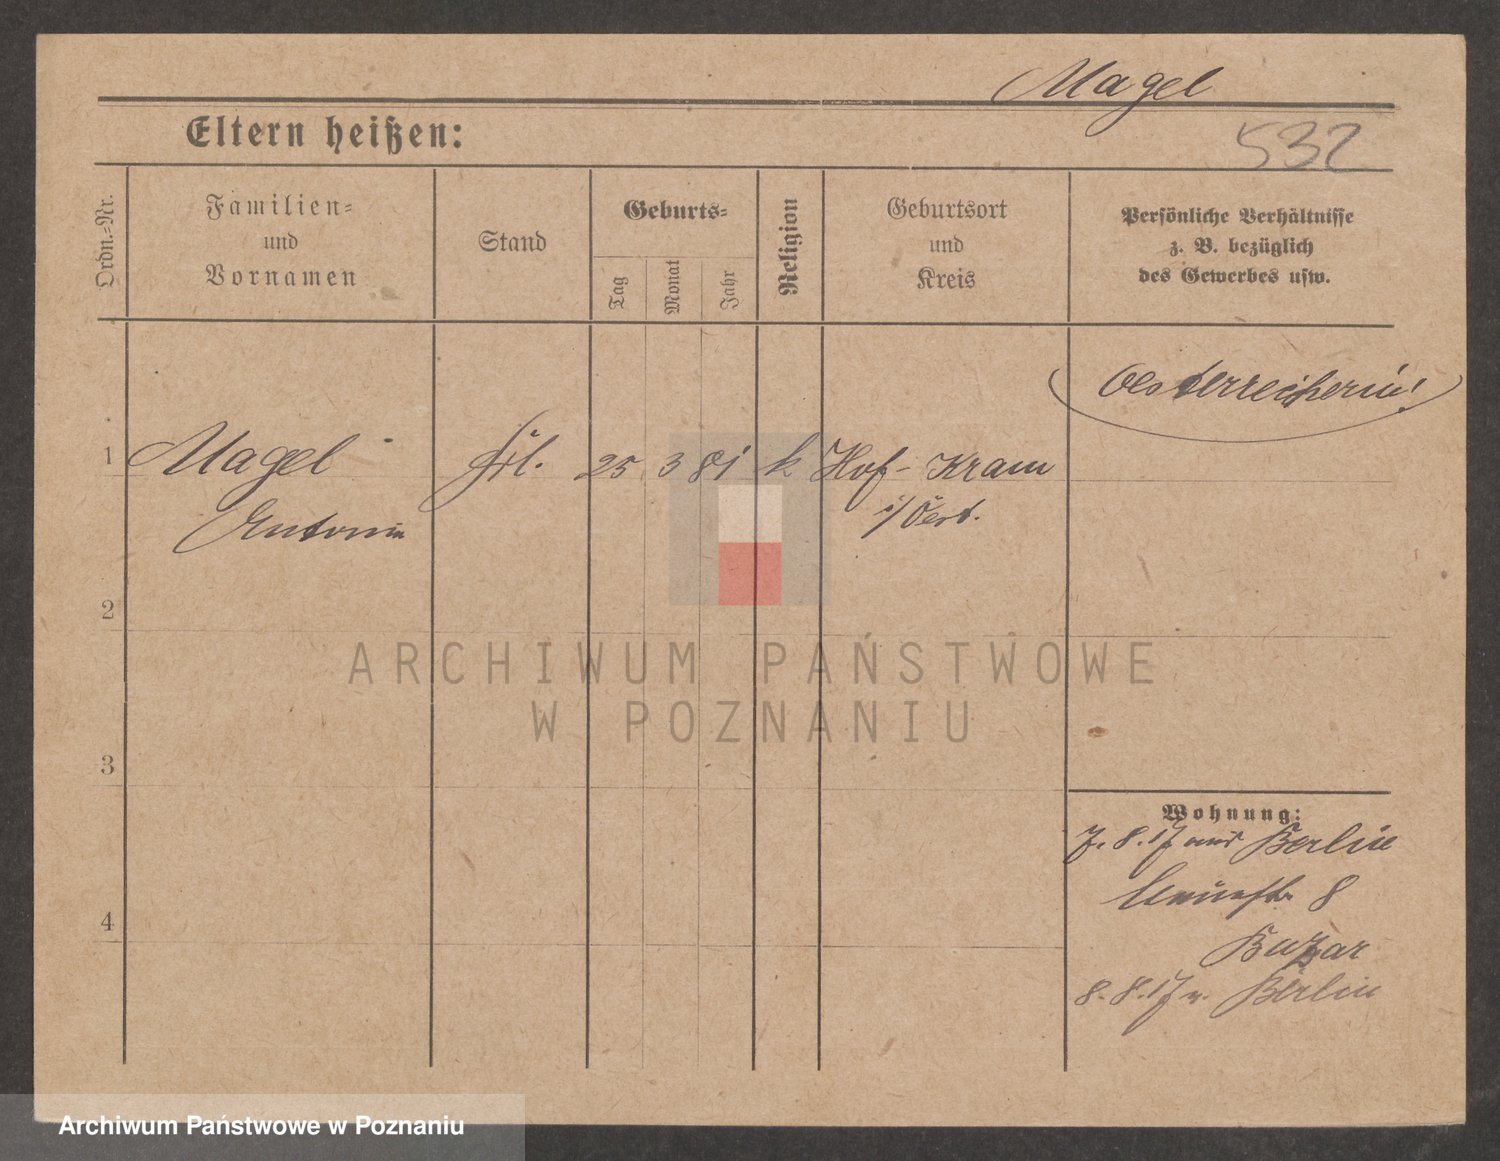 Magel
Eltern heißen:
532
Ordn.-Nr.
Familien-
und
Vornamen
Stand
Geburts-
Tag
Monat
Jahr
Religion
Geburtsort
und
Kreis
Persönliche Verhältnisse
z. B. bezüglich
des Gewerbes usw.
Oesterreicherin!
1 Magel Frl. 25 3 81 k Hof-Kram
Antonin i/Öest.
2
3
4
Wohnung:
7. 8. 17 aus Berlin
8
Bazar
8. 8. 17 n. Berlin
ARCHIWUM PAŃSTWOWE
W POZNANIU
Archiwum Państwowe w Poznaniu